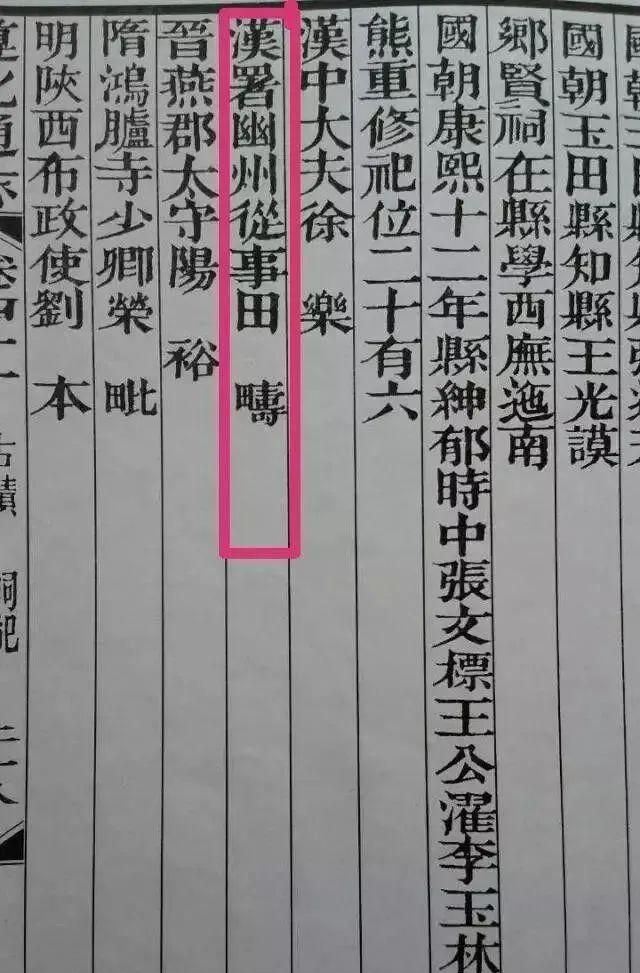 國朝玉田縣知縣王光謨
鄉賢祠在縣學西廡迤南
國朝康熙十二年縣紳郁時中張文標王公濯李玉林
熊重修祀位二十有六
漢中大夫徐樂
漢署幽州從事田疇
晉燕郡太守陽裕
隋鴻臚寺少卿榮毗
明陝西布政使劉本
遵化通志 卷四十二 古蹟 祠祀